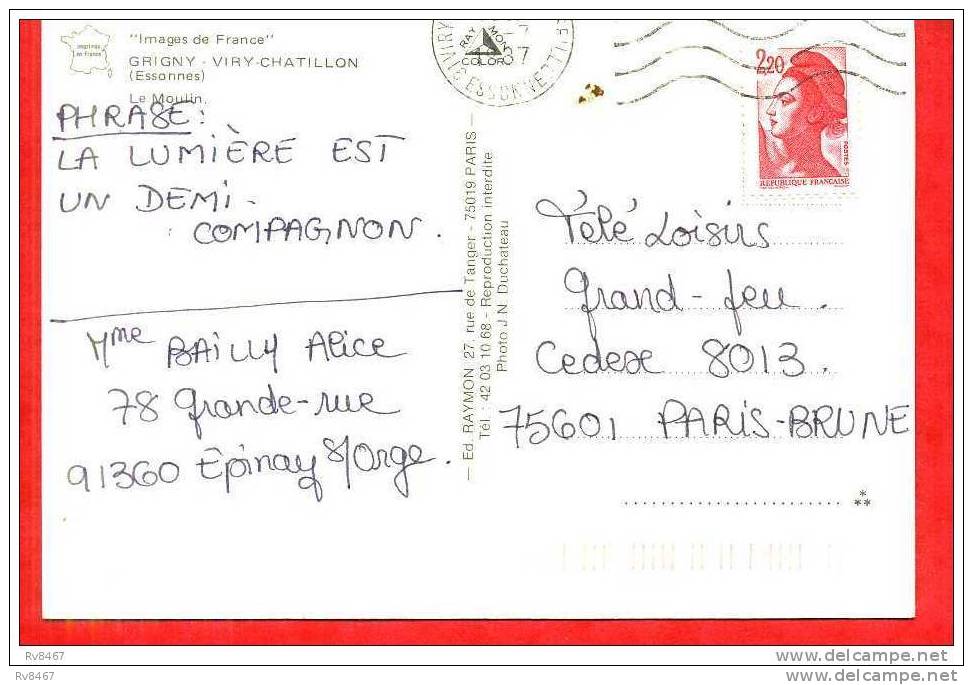 imprimé
en france
"Images de France"
GRIGNY - VIRY-CHATILLON
(Essonnes)
Le Moulin.
PHRASE:
LA LUMIÈRE EST
UN DEMI-
COMPAGNON.
Mme BAILLY Alice
78 grande-rue
91360 Epinay s/Orge.
— Ed. RAYMON 27. rue de Tanger - 75019 PARIS —
Tél : 42 03 10 68 - Reproduction interdite
Photo J.N. Duchateau
RAY MON
COLOR
ESSONNE
2,20
POSTES
REPUBLIQUE FRANÇAISE
Télé Loisirs
grand-jeu.
Cedex 8013.
75601 PARIS-BRUNE
Rv8467
Rv8467
www.delcampe.net
www.delcampe.net